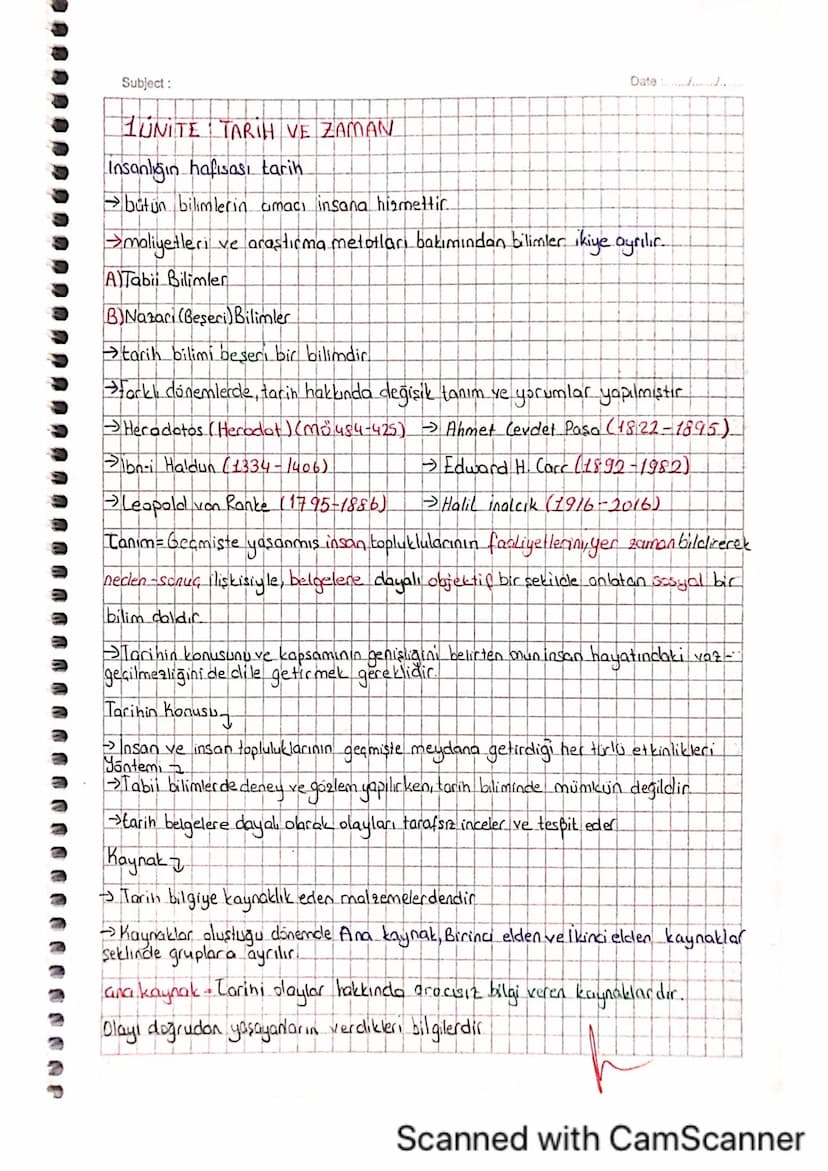 Subject :
Date : ....../....../..
1.ÜNİTE : TARİH VE ZAMAN
İnsanlığın hafısası tarih
→ bütün bilimlerin amacı insana hizmettir.
→ maliyetleri ve araştırma metotları bakımından bilimler ikiye ayrılır.
A) Tabii Bilimler
B) Nazari (Beşeri) Bilimler
→ tarih bilimi beşeri bir bilimdir.
→ Farklı dönemlerde, tarih hakkında değişik tanım ve yorumlar yapılmıştır
→ Heradotos (Herodot) (MÖ 484-425) → Ahmet Cevdet Paşa (1822-1895)
→ İbn-i Haldun (1334-1406) → Edward H. Carr (1892-1982)
→ Leopold von Ranke (1795-1886) → Halil inalcık (1916-2016)
Tanım= Geçmişte yaşanmış insan topluklularının faaliyetlerini, yer zaman bildirerek
neden-sonuç ilişkisiyle, belgelere dayalı objektif bir şekilde anlatan sosyal bir
bilim daldır.
→ Tarihin konusunu ve kapsamının genişliğini belirten onun insan hayatındaki vaz-
geçilmezliğini de dile getirmek gereklidir.
Tarihin Konusu
→ İnsan ve insan topluluklarının geçmişte meydana getirdiği her türlü etkinlikleri
Yöntemi
→ Tabii bilimlerde deney ve gözlem yapılırken, tarih biliminde mümkün değildir.
→ tarih belgelere dayalı olarak olayları tarafsız inceler ve tespit eder
Kaynak
→ Tarih bilgiye kaynaklık eden malzemelerdendir
→ Kaynaklar oluştuğu dönemde Ana kaynak, Birinci elden ve İkinci elden kaynaklar
şeklinde gruplara ayrılır.
ana kaynak = Tarihi olaylar hakkında aracısız bilgi veren kaynaklardır.
Olayı doğrudan yaşayanların verdikleri bilgilerdir
Scanned with CamScanner